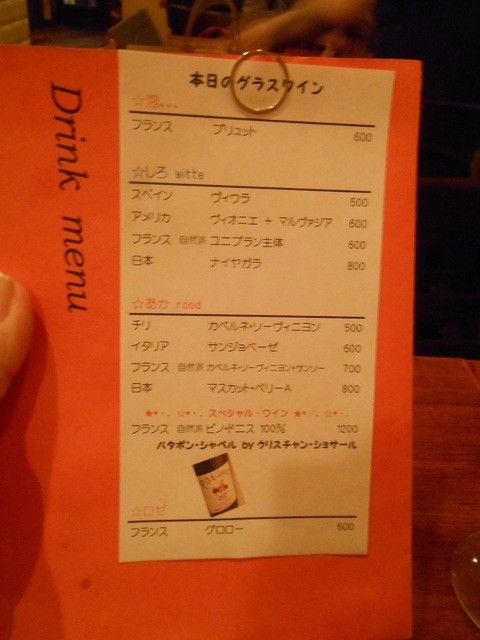 Drink menu
本日のグラスワイン
☆泡...
フランス ブリュット 600
☆しろ witte
スペイン ヴィウラ 500
アメリカ ヴィオニエ + マルヴァジア 600
フランス 自然派 ユニブラン主体 600
日本 ナイヤガラ 800
☆あか rood
チリ カベルネ・ソーヴィニヨン 500
イタリア サンジョベーゼ 600
フランス 自然派 カベルネ・ソーヴィニヨン+サンソー 700
日本 マスカット・ベリーA 800
★*・. ☆*・. スペシャル・ワイン ★*・. ☆*・.
フランス 自然派 ピノ・ドニス 100% 1200
パタポン・シャペル by クリスチャン・ショサール
☆ロゼ
フランス グロロー 600